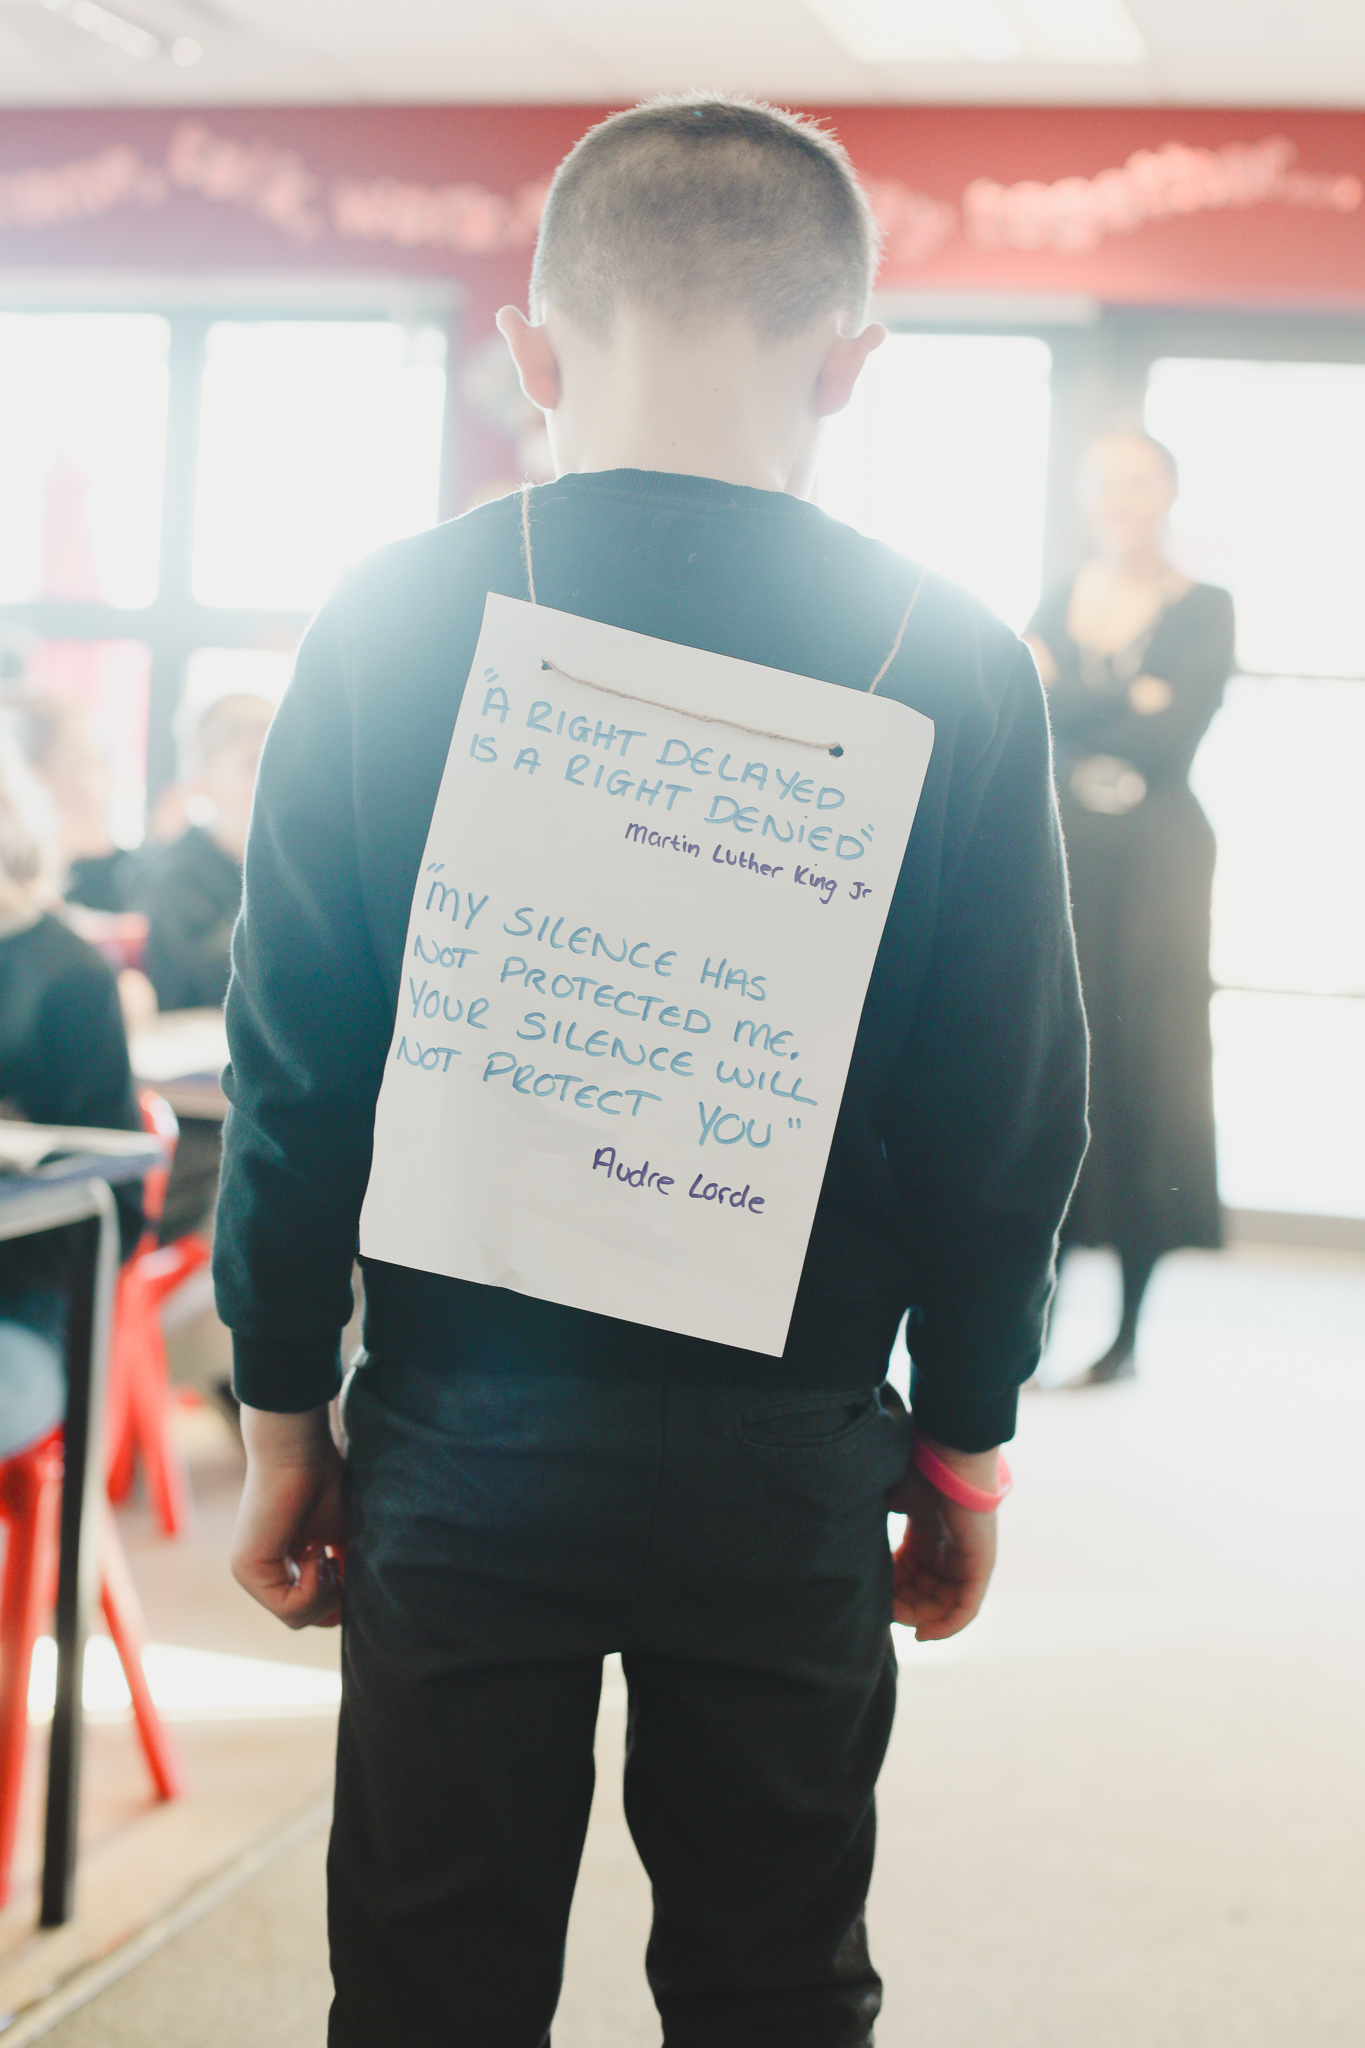 "A RIGHT DELAYED
IS A RIGHT DENIED"
Martin Luther King Jr
"MY SILENCE HAS
NOT PROTECTED ME.
YOUR SILENCE WILL
NOT PROTECT YOU"
Audre Lorde
together...